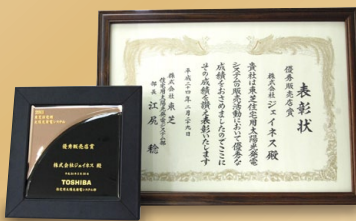 表彰状
優秀販売店賞
株式会社 ジェイネス 殿
貴社は東芝住宅用太陽光発電
システム販売活動において優秀な
成績をおさめましたのでここに
その成績を讃え表彰いたします
平成二十四年 二月二十九日
株式会社 東芝
部長 江尻 稔
優秀販売店賞
株式会社ジェイネス 殿
TOSHIBA